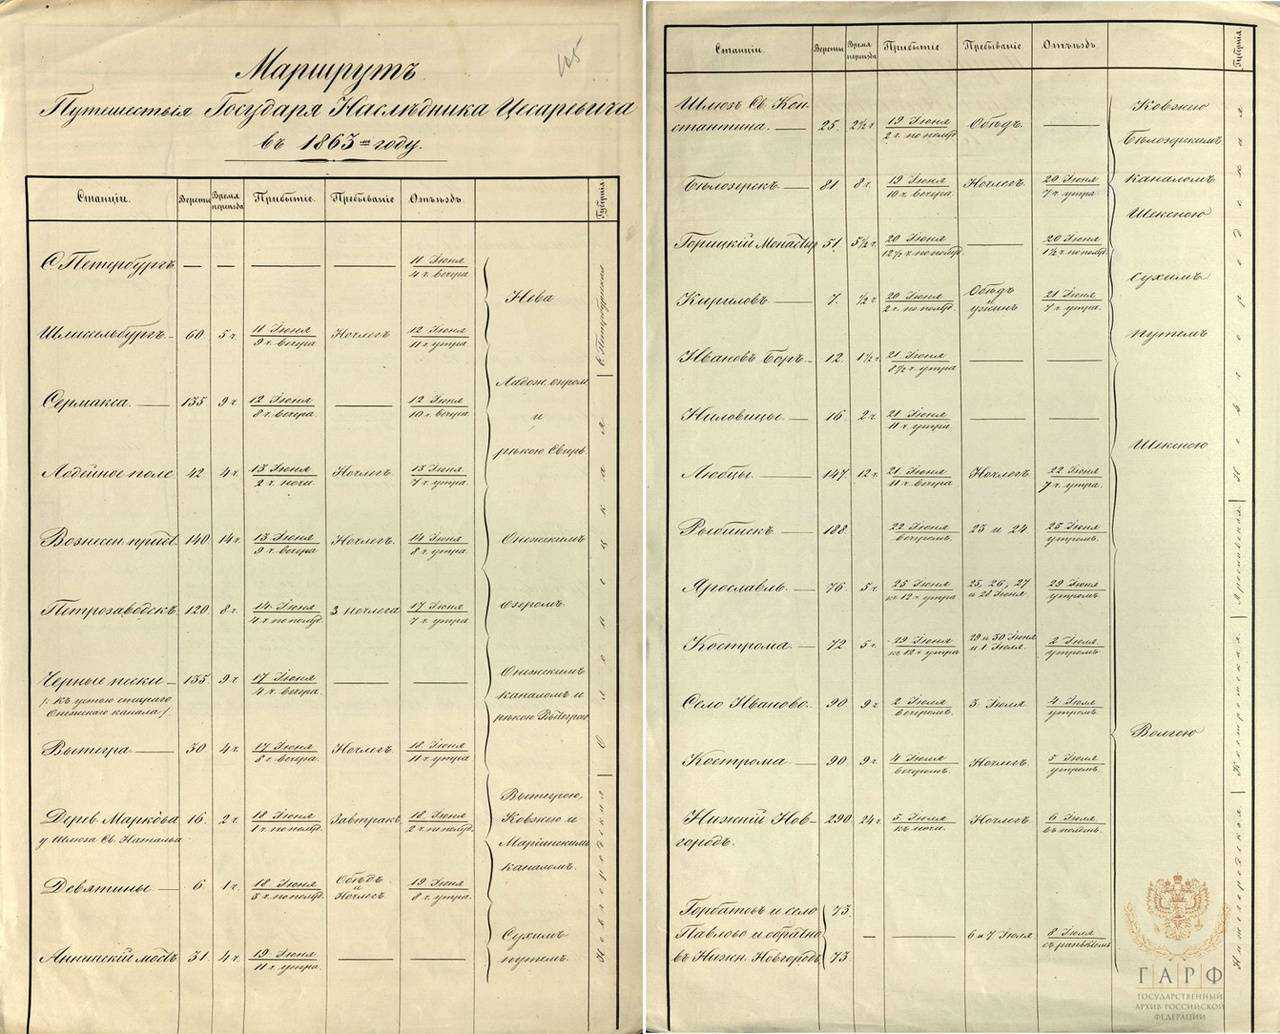 105
Маршрутъ
Путешествія Государя Наслѣдника Цесаревича
въ 1863-мъ году.
Станціи. Версты Время переѣзда Прибытіе. Пребываніе Отъѣздъ Губернія
С Петербургъ — — — — 11 Іюня / 4 ч. вечера
Нева
С. Петербургская
Шлиссельбургъ 60 5 ч. 11 Іюня / 9 ч. вечера Ночлегъ 12 Іюня / 11 ч. утра
Сермакса. 135 9 ч. 12 Іюня / 8 ч. вечера — 12 Іюня / 10 ч. вечера
Ладож. озером
и
рѣкою Свирь.
Лодейное поле 42 4 ч. 13 Іюня / 2 ч. ночи. Ночлегъ 13 Іюня / 7 ч. утра.
Вознесен. прист. 140 14 ч. 13 Іюня / 9 ч. вечера Ночлегъ. 14 Іюня / 8 ч. утра.
Онежскимъ
Петрозаводскъ 120 8 ч. 14 Іюня / 4 ч. по полуд. 3 ночлега 17 Іюня / 7 ч. утра
озеромъ.
Олонецкая
Черные пески 135 9 ч. 17 Іюня / 4 ч. вечера. — —
/: къ устью стараго
Онежскаго канала :/
Онежскимъ
каналомъ и
рѣкою Вытегрою
Вытегра 30 4 ч. 17 Іюня / 8 ч. вечера Ночлегъ. 18 Іюня / 11 ч. утра
Дерев. Маркова 16. 2 ч. 18 Іюня / 1 ч. по полуд. Завтракъ 18 Іюня / 2 ч. по полуд.
у Шлюза Св. Наталіи
Вытегрою,
Ковжею и
Маріинскимъ
каналомъ.
Девятины 6 1 ч. 18 Іюня / 3 ч. по полуд. Обѣдъ и Ночлегъ 19 Іюня / 8 ч. утра.
Аннинскій мостъ 31 4 ч. 19 Іюня / 11 ч. утра. — —
Сухимъ
путемъ.
Новгородская
Станціи. Версты Время переѣзда Прибытіе Пребываніе Отъѣздъ Губернія
Шлюзъ Св. Кон-
стантина. 25. 2½ ч. 19 Іюня / 2 ч. по полуд. Обѣдъ. —
Ковжею
Бѣлозерскимъ
Бѣлозерскъ 81 8 ч. 19 Іюня / 10 ч. вечера. Ночлегъ. 20 Іюня / 7 ч. утра.
каналомъ
Шексною
Горицкій Монастыр 51. 5½ ч. 20 Іюня / 12½ ч. по полуд. — 20 Іюня / 1½ ч. по полуд.
Кириловъ 7. ½ ч. 20 Іюня / 2 ч. по полуд. Обѣдъ и ужинъ 21 Іюня / 7 ч. утра.
Сухимъ
путемъ
Ивановъ Боръ. 12 1½ ч. 21 Іюня / 8½ ч. утра — —
Ниловицы. 16 2 ч. 21 Іюня / 11 ч. утра — —
Шексною
Любцы. 147. 12 ч. 21 Іюня / 11 ч. вечера Ночлегъ 22 Іюня / 7 ч. утра.
Новгородская
Рыбинскъ 188. 22 Іюня / вечеромъ. 23 и 24. 25 Іюня / утромъ.
Ярославль. 76 5 ч. 25 Іюня / къ 12 ч. утра 25, 26, 27 и 28 Іюня. 29 Іюня / утромъ.
Ярославская
Кострома. 72 5 ч. 29 Іюня / къ 12 ч. утра 29 и 30 Іюня и 1 Іюля. 2 Іюля / утромъ.
Село Иваново. 90 9 ч. 2 Іюля / вечеромъ. 3 Іюля 4 Іюля / утромъ.
Волгою
Кострома 90 9 ч. 4 Іюля / вечеромъ Ночлегъ 5 Іюля / утромъ.
Костромская
Нижній Нов-
городъ. 290 24 ч. 5 Іюля / къ ночи. Ночлегъ. 6 Іюля / въ полдень.
Горбатовъ и село 73.
Павлово и обратно — — 6 и 7 Іюля 8 Іюля / съ разсвѣтомъ
въ Нижн. Новгородъ 73
Нижегородская
ГАРФ
ГОСУДАРСТВЕННЫЙ
АРХИВ РОССИЙСКОЙ
ФЕДЕРАЦИИ